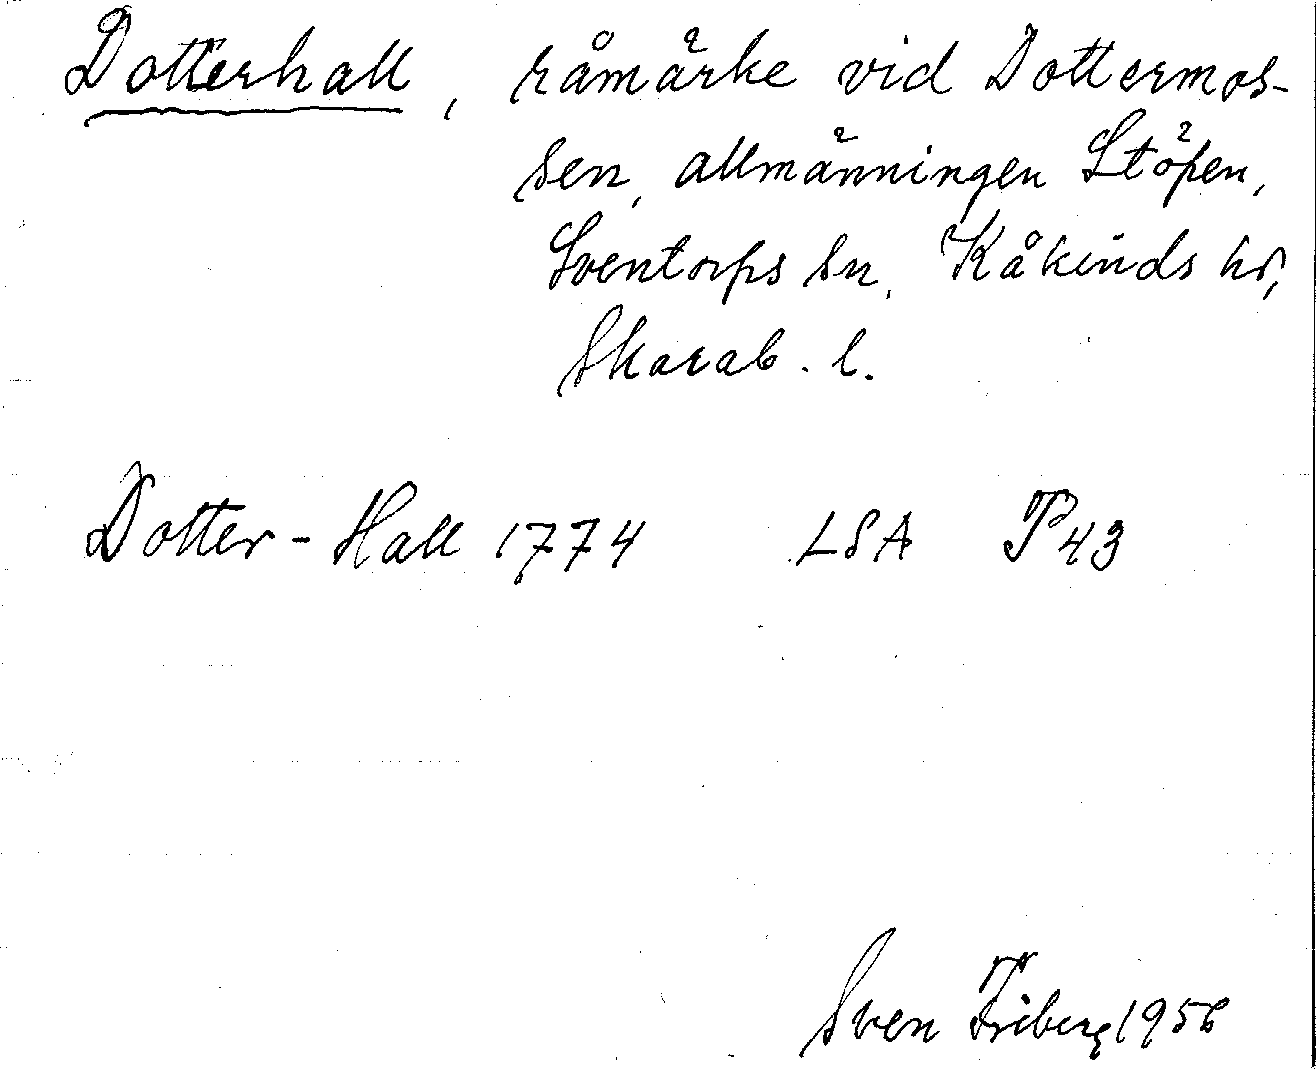 Dotterhall, råmärke vid Dottermos-
sen, allmänningen Stöpen,
Sventorps sn, Kåkinds hd,
Skarab. l.
Dotter-Hall 1774 LSA P43
Sven Friberg 1956